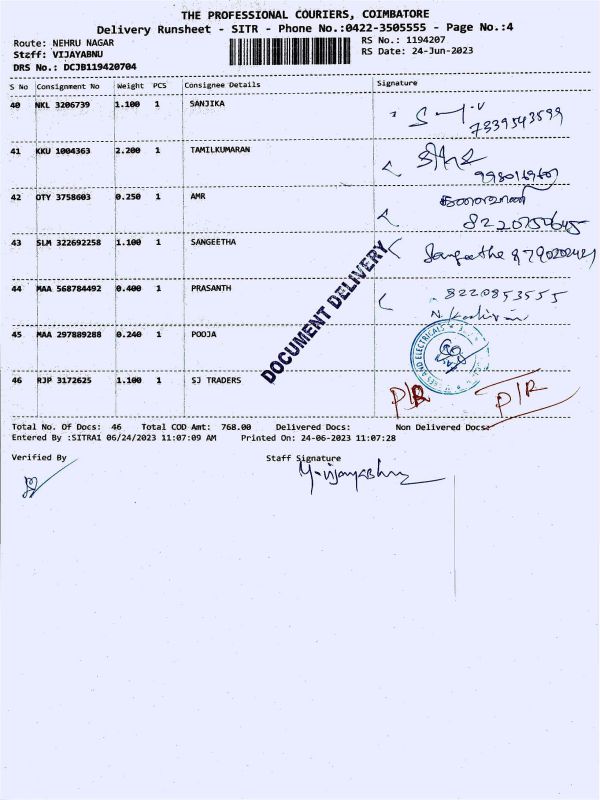 THE PROFESSIONAL COURIERS, COIMBATORE
Delivery Runsheet - SITR - Phone No.:0422-3505555 - Page No.:4
Route: NEHRU NAGAR
RS No.: 1194207
Staff: VIJAYABNU
RS Date: 24-Jun-2023
DRS No.: DCJB119420704
S No Consignment No Weight PCS Consignee Details Signature
40 NKL 3206739 1.100 1 SANJIKA
7339543599
41 KKU 1004363 2.200 1 TAMILKUMARAN
42 OTY 3758603 0.250 1 AMR
8220750645
43 SLM 322692258 1.100 1 SANGEETHA
Sangeetha 8790202421
44 MAA 568784492 0.400 1 PRASANTH
8220853555
45 MAA 297809288 0.240 1 POOJA
AND ELECTRICALS
46 RJP 3172625 1.100 1 SJ TRADERS
P/R P/R
DOCUMENT DELIVERY
Total No. Of Docs: 46 Total COD Amt: 768.00 Delivered Docs: Non Delivered Docs:
Entered By :SITRA1 06/24/2023 11:07:09 AM Printed On: 24-06-2023 11:07:28
Verified By
Staff Signature